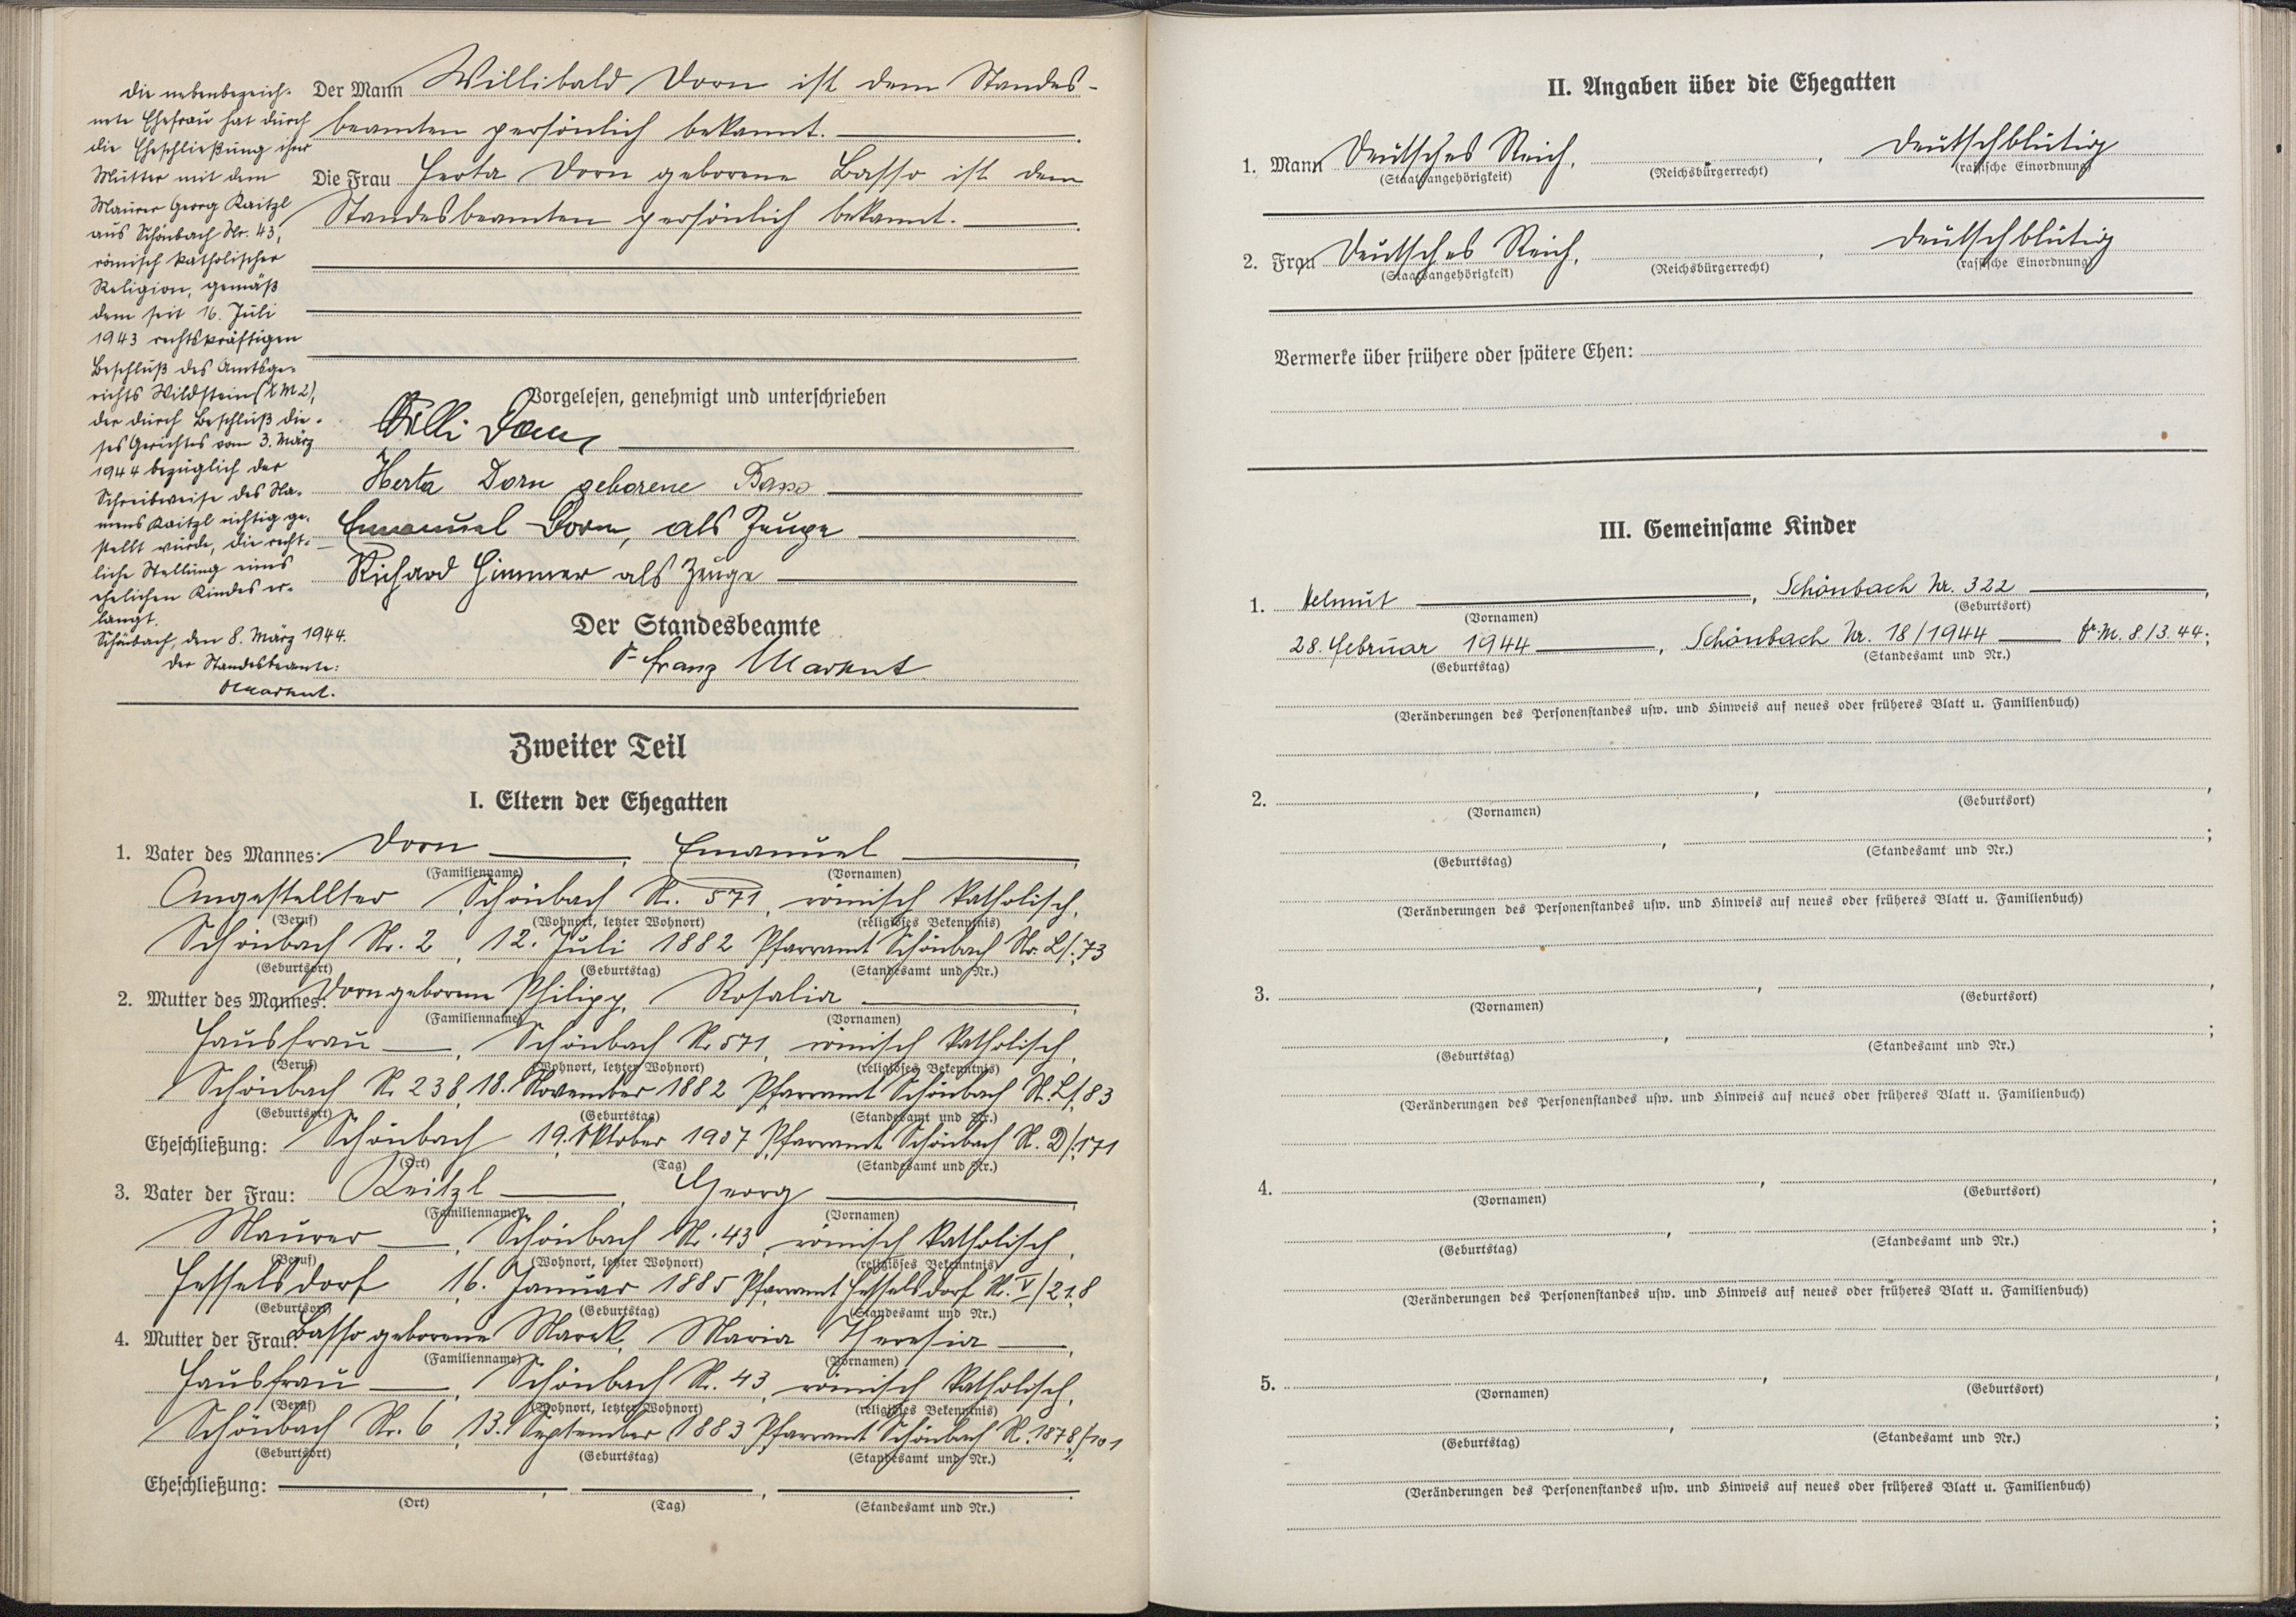 Die nebenbezeich-
nete Ehefrau hat durch
die Eheschließung ihrer
Mutter mit dem
Maurer Georg Kaitzl
aus Schönbach Nr. 43,
römisch katholischer
Religion, gemäß
dem seit 16. Juli
1943 rechtskräftigen
Beschluß des Amtsge-
richts Wildstein (X M 2),
der durch Beschluß die-
ses Gerichtes vom 3. März
1944 bezüglich der
Schreibweise des Na-
mens Kaitzl richtig ge-
stellt wurde, die recht-
liche Stellung eines
ehelichen Kindes er-
langt.
Schönbach, den 8. März 1944.
Der Standesbeamte:
Markut.
Der Mann Willibald Dorn ist dem Standes-
beamten persönlich bekannt.
Die Frau Herta Dorn geborene Basso ist dem
Standesbeamten persönlich bekannt.
Vorgelesen, genehmigt und unterschrieben
Willi Dorn
Herta Dorn geborene Basso
Emanuel Dorn, als Zeuge
Richard Himmer als Zeuge
Der Standesbeamte
Franz Markut
Zweiter Teil
I. Eltern der Ehegatten
1. Vater des Mannes: Dorn, Emanuel,
(Familienname) (Vornamen)
Angestellter, Schönbach Nr. 571, römisch katholisch,
(Beruf) (Wohnort, letzter Wohnort) (religiöses Bekenntnis)
Schönbach Nr. 2, 12. Juli 1882 Pfarramt Schönbach Nr. L/73
(Geburtsort) (Geburtstag) (Standesamt und Nr.)
2. Mutter des Mannes: Dorn geborene Philipp, Rosalia,
(Familienname) (Vornamen)
Hausfrau, Schönbach Nr. 571, römisch katholisch,
(Beruf) (Wohnort, letzter Wohnort) (religiöses Bekenntnis)
Schönbach Nr. 238, 18. November 1882 Pfarramt Schönbach Nr. L/83
(Geburtsort) (Geburtstag) (Standesamt und Nr.)
Eheschließung: Schönbach, 19. Oktober 1907, Pfarramt Schönbach Nr. D/171
(Ort) (Tag) (Standesamt und Nr.)
3. Vater der Frau: Keitzl, Georg,
(Familienname) (Vornamen)
Maurer, Schönbach Nr. 43, römisch katholisch,
(Beruf) (Wohnort, letzter Wohnort) (religiöses Bekenntnis)
Hesselsdorf, 16. Januar 1885 Pfarramt Hesselsdorf Nr. V/218
(Geburtsort) (Geburtstag) (Standesamt und Nr.)
4. Mutter der Frau: Basso geborene Marek, Maria Theresia,
(Familienname) (Vornamen)
Hausfrau, Schönbach Nr. 43, römisch katholisch,
(Beruf) (Wohnort, letzter Wohnort) (religiöses Bekenntnis)
Schönbach Nr. 6, 13. September 1883 Pfarramt Schönbach Nr. 1878/101
(Geburtsort) (Geburtstag) (Standesamt und Nr.)
Eheschließung: , , .
(Ort) (Tag) (Standesamt und Nr.)
II. Angaben über die Ehegatten
1. Mann Deutsches Reich, , deutschblütig
(Staatsangehörigkeit) (Reichsbürgerrecht) (rassische Einordnung)
2. Frau Deutsches Reich, , deutschblütig
(Staatsangehörigkeit) (Reichsbürgerrecht) (rassische Einordnung)
Vermerke über frühere oder spätere Ehen:
III. Gemeinsame Kinder
1. Helmut, Schönbach Nr. 322,
(Vornamen) (Geburtsort)
28. Februar 1944, Schönbach Nr. 18/1944 Fr. M. 8/3.44;
(Geburtstag) (Standesamt und Nr.)
(Veränderungen des Personenstandes usw. und Hinweis auf neues oder früheres Blatt u. Familienbuch)
2. , ,
(Vornamen) (Geburtsort)
, ;
(Geburtstag) (Standesamt und Nr.)
(Veränderungen des Personenstandes usw. und Hinweis auf neues oder früheres Blatt u. Familienbuch)
3. , ,
(Vornamen) (Geburtsort)
, ;
(Geburtstag) (Standesamt und Nr.)
(Veränderungen des Personenstandes usw. und Hinweis auf neues oder früheres Blatt u. Familienbuch)
4. , ,
(Vornamen) (Geburtsort)
, ;
(Geburtstag) (Standesamt und Nr.)
(Veränderungen des Personenstandes usw. und Hinweis auf neues oder früheres Blatt u. Familienbuch)
5. , ,
(Vornamen) (Geburtsort)
, ;
(Geburtstag) (Standesamt und Nr.)
(Veränderungen des Personenstandes usw. und Hinweis auf neues oder früheres Blatt u. Familienbuch)